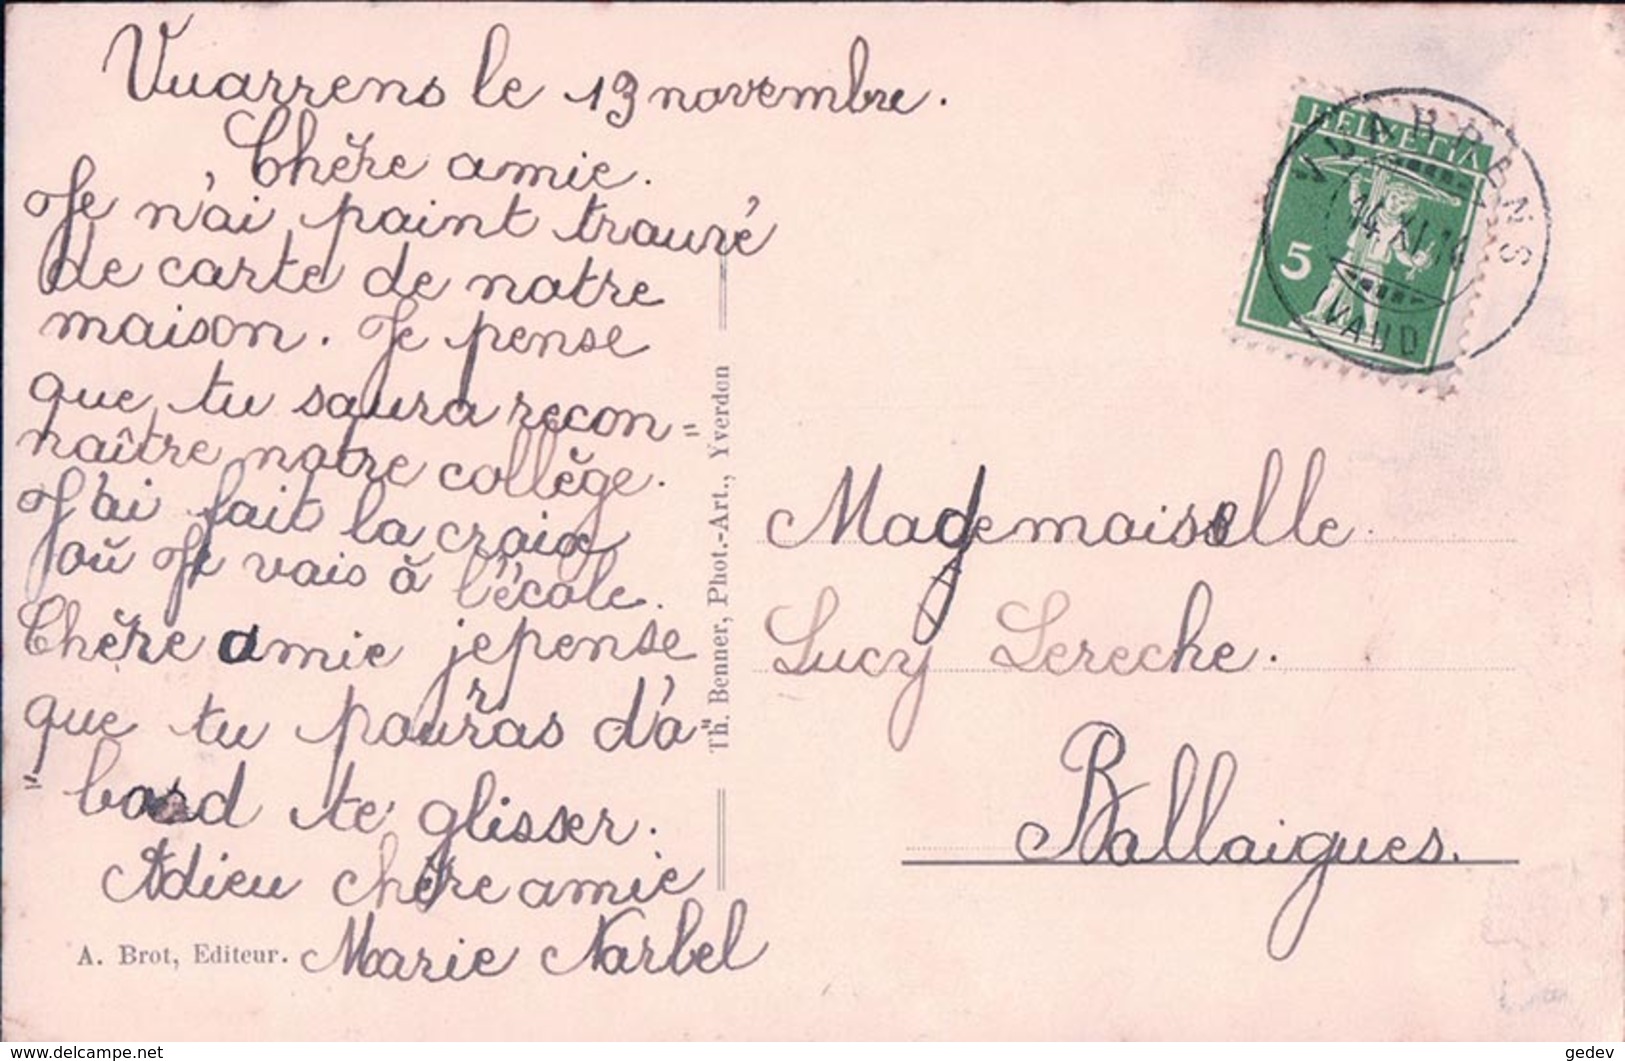 Vuarrens le 13 novembre.
Chère amie.
Je n'ai point trouvé
de carte de notre
maison. Je pense
que tu saura recon=
naître notre collège.
J'ai fait la croix
où Je vais à l'école.
Chère amie je pense
que tu pourras d'a=
"bord te glisser.
Adieu chère amie
Marie Narbel
A. Brot, Editeur.
Th. Benner, Phot.-Art., Yverdon
HELVETIA
5
VUARRENS
14.XI.14
VAUD
Mademoiselle
Lucy Lereche.
Ballaigues.
gedev